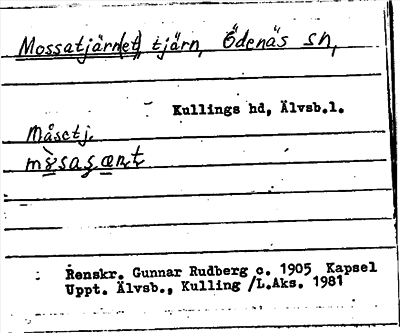 Mossatjärn(et), tjärn, Ödenäs sn,
Kullings hd, Älvsb.l.
Måsctj.
Renskr. Gunnar Rudberg c. 1905 Kapsel
Uppt. Älvsb., Kulling /L.Aks. 1981